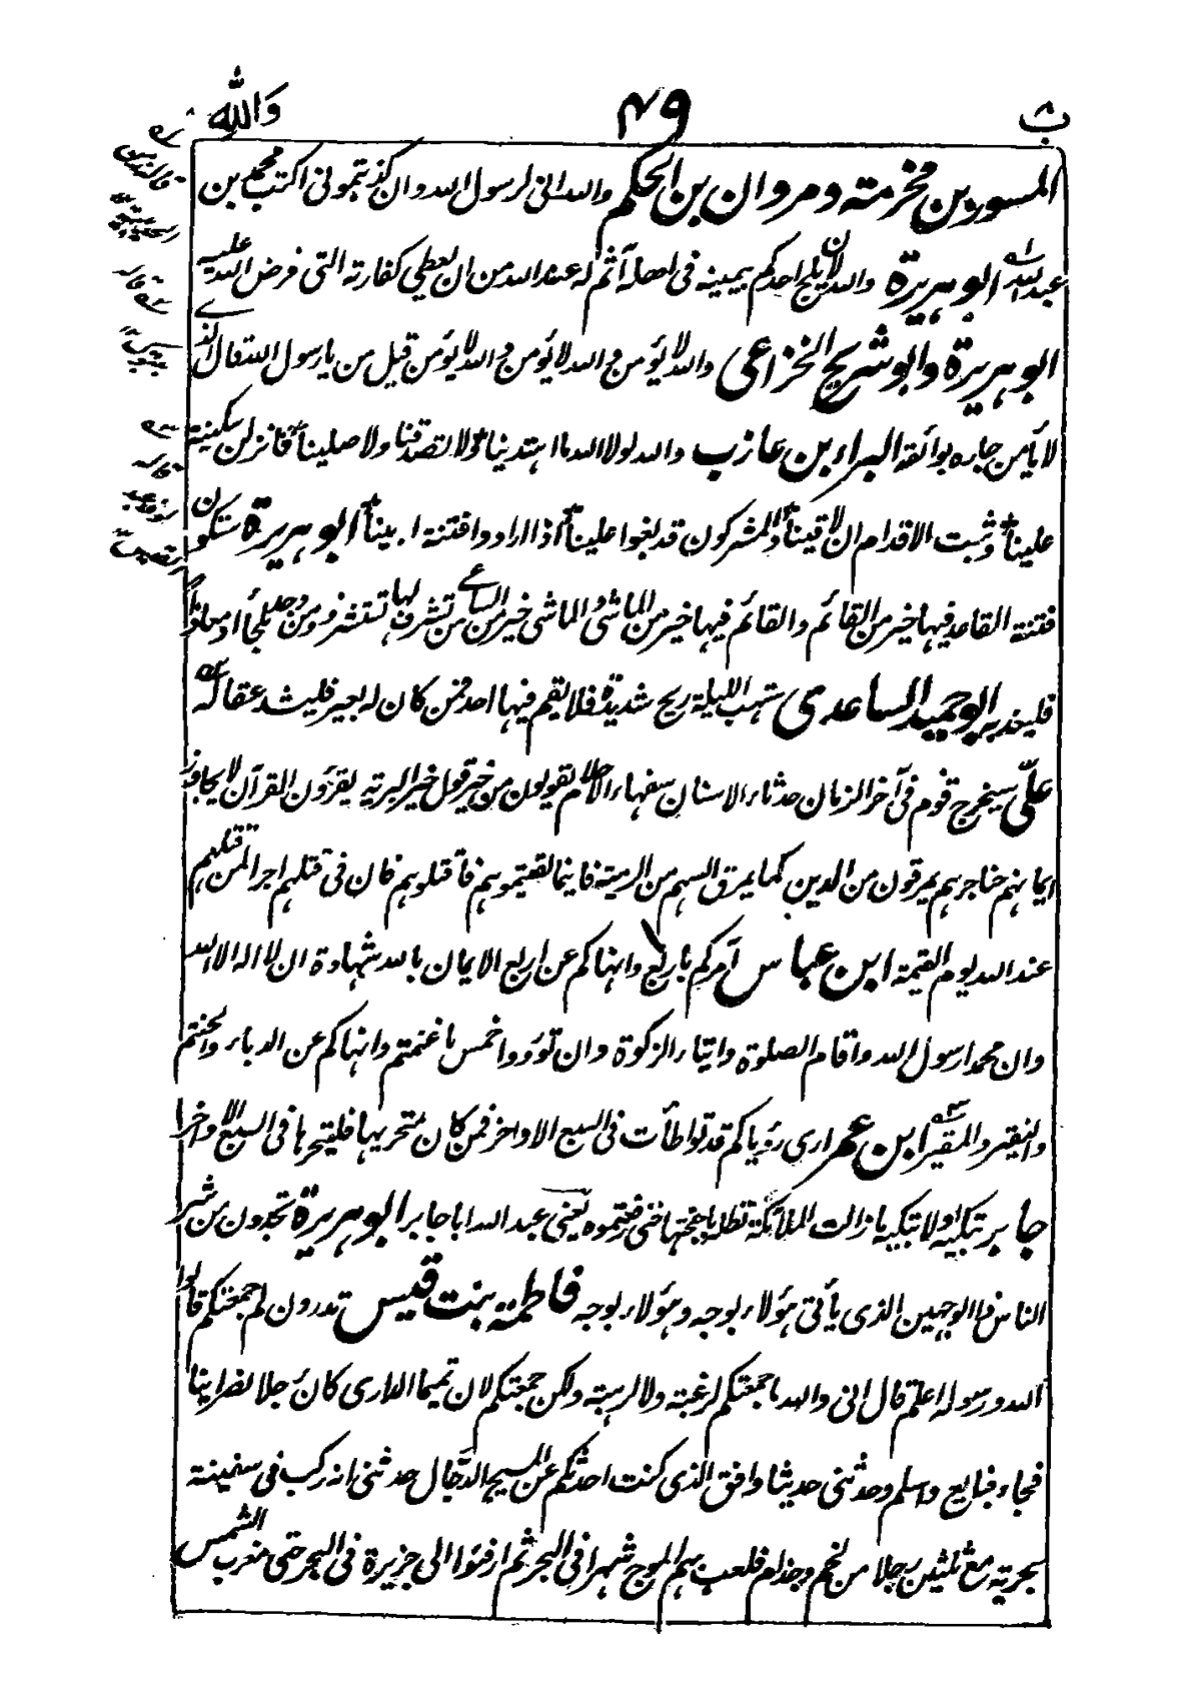 ب ٤٩ والله
المسور بن مخرمة ومروان بن الحكم والله انى لرسول الله وان كذبتمونى اكتب محمد بن
عبد الله ابو هريرة والله لان يلج احدكم بيمينه فى اهله آثم له عند الله من ان يعطي كفارته التى فرض الله عليه
ابو هريرة وابو شريح الخزاعى والله لا يؤمن والله لا يؤمن والله لا يؤمن قيل من يا رسول الله قال الذى
لا يأمن جاره بوائقه البراء بن عازب والله لولا الله ما اهتدينا ولا تصدقنا ولا صلينا فانزلن سكينة
علينا وثبت الاقدام ان لاقينا والمشركون قد بغوا علينا اذا ارادوا فتنة ابينا ابو هريرة ستكون
فتنة القاعد فيها خير من القائم والقائم فيها خير من الماشى والماشى خير من الساعى من تشرف لها تستشرفه ومن وجد ملجأ او معاذا
فليعذ به ابو حميد الساعدى تهب الليلة ريح شديدة فلا يقم فيها احد فمن كان له بعير فليشد عقاله
على سيخرج قوم فى آخر الزمان حدثاء الاسنان سفهاء الاحلام يقولون من خير قول خير البرية يقرؤن القرآن لا يجاوز
ايمانهم حناجرهم يمرقون من الدين كما يمرق السهم من الرمية فاينما لقيتموهم فاقتلوهم فان فى قتلهم اجرا لمن قتلهم
عند الله يوم القيمة ابن عباس آمركم باربع وانهاكم عن اربع الايمان بالله شهادة ان لا اله الا الله
وان محمدا رسول الله واقام الصلوة وايتاء الزكوة وان تؤدوا خمس ما غنمتم وانهاكم عن الدباء والحنتم
والنقير والمقير ابن عمر ارى رؤياكم قد تواطأت فى السبع الاواخر فمن كان متحريها فليتحرها فى السبع الاواخر
جابر تبكيه اولا تبكيه ما زالت الملائكة تظله باجنحتها حتى رفعتموه يعنى عبد الله ابا جابر ابو هريرة تجدون من شر
الناس ذا الوجهين الذى يأتى هؤلاء بوجه وهؤلاء بوجه فاطمة بنت قيس تدرون لم جمعتكم قالوا
الله ورسوله اعلم قال انى والله ما جمعتكم لرغبة ولا لرهبة ولكن جمعتكم لان تميما الدارى كان رجلا نصرانيا
فجاء فبايع واسلم وحدثنى حديثا وافق الذى كنت احدثكم عن المسيح الدجال حدثنى انه ركب فى سفينة
بحرية مع ثلثين رجلا من لخم وجذام فلعب بهم الموج شهرا فى البحر ثم ارفئوا الى جزيرة فى البحر حتى مغرب الشمس